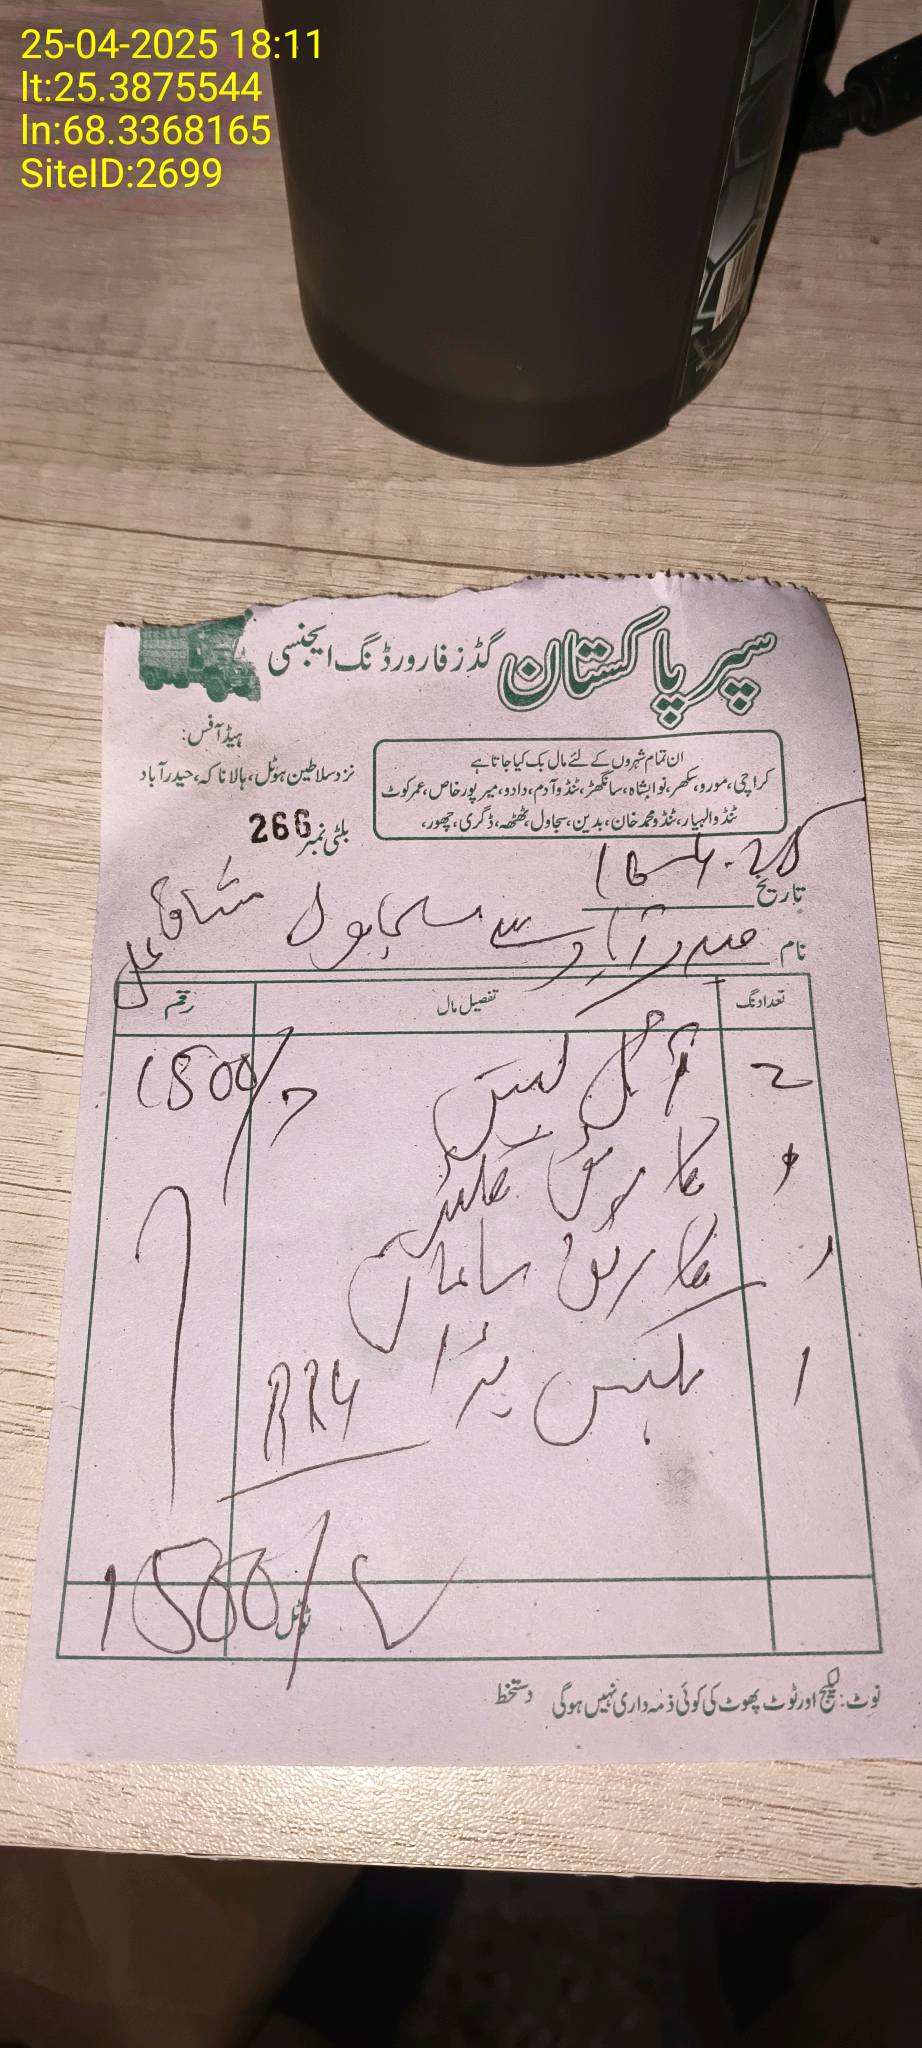 25-04-2025 18:11
lt:25.3875544
ln:68.3368165
SiteID:2699
سپر پاکستان گڈز فارورڈنگ ایجنسی
ہیڈ آفس:
نزد سلاطین ہوٹل، ہالا ناکہ، حیدرآباد
ان تمام شہروں کے لئے مال بک کیا جاتا ہے
کراچی، مورو، سکھر، نوابشاہ، سانگھڑ، ٹنڈو آدم، دادو، میرپور خاص، عمرکوٹ
ٹنڈو الہیار، ٹنڈو محمد خان، بدین، سجاول، ٹھٹھہ، ڈگری، چھور،
بلٹی نمبر 266
تاریخ 16-4-25
نام حیدرآباد سے سجاول
تعداد نگ تفصیل مال رقم
2 1500/
کارٹن
کارٹن سامان
1 بڑا
ٹوٹل 1500/
نوٹ: لیکیج اور ٹوٹ پھوٹ کی کوئی ذمہ داری نہیں ہوگی دستخط